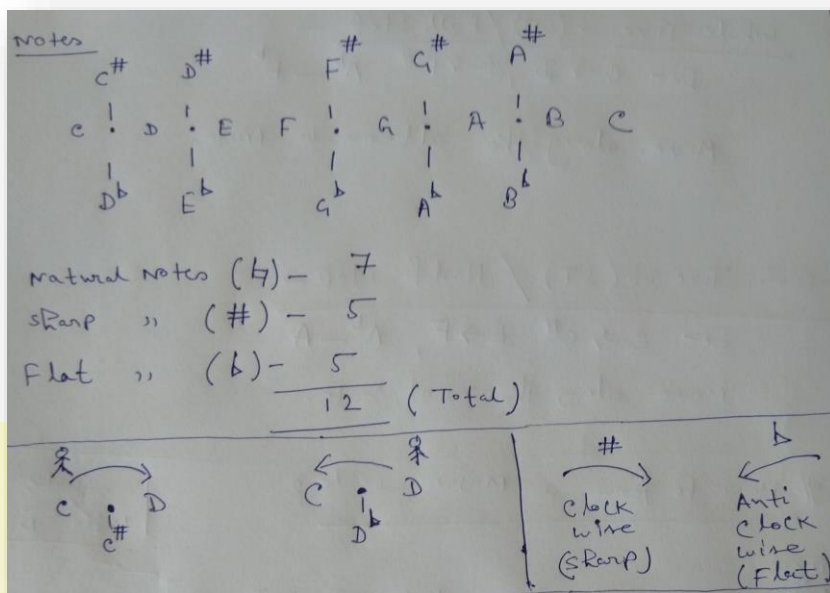 Notes
C# D# F# G# A#
C D E F G A B C
Db Eb Gb Ab Bb
Natural Notes (♮) - 7
Sharp ,, (#) - 5
Flat ,, (b) - 5
12 (Total)
C D
C#
C D
Db
#
Clock
wire
(Sharp)
b
Anti
Clock
wire
(Flat)